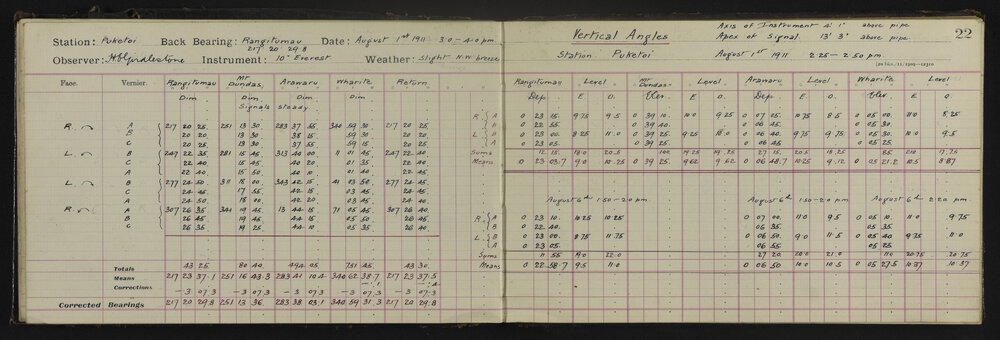 Station: Puketoi Back Bearing: Rangitumau Date: August 1st 1911 3.0 - 4.0 pm
217 20 29.8
Observer: Instrument: 10" Everest Weather: Slight N.W. breeze
Face. Vernier. Rangitumau Mt Dundas. Arawaru Wharite Return.
Dim Dim Dim Dim
Signals steady.
R. A 217 20 25. 251 13 30 283 37 55 340 59 30 217 20 25
B 20 20. 13 30 38 15. 59 30 20 20
C 20 25. 13 30 37 55 59 15 20 25
L. B 247 22 35 281 15 45 313 40 00 11 01 45 247 22 40
C 22 40 15 45 40 20 01 35 22 40
A 22 40. 15 50 40 10 01 40 22 45
L. B 277 24 50 311 18 00 343 42 15 41 03 50 277 24 45
C 24 45 17 55 42 15 03 45 24 45
A 24 50. 18 00 42 20 03 45 24 40
R. A 307 26 35 341 19 45 13 44 15 71 05 45 307 26 40
B 26 45 19 45 44 15 05 50 26 45
C 26 35 19 25 44 10 05 35 26 40
Totals 43 25. 80 40 494 05 751 45 43 30
Means 217 23 37.1 251 16 43.3 283 41 10.4 340 62 38.7 217 23 37.5
Corrections
— 3 07.3 — 3 07.3 — 3 07.3 — 3 07.3 — 3 07.3
Corrected Bearings 217 20 29.8 251 13 36 283 38 03.1 340 59 31.3 217 20 29.8
Vertical Angles
Axis of Instrument 4' 1" above pipe
Apex of Signal 13' 3" above pipe
22
Station Puketoi August 1st 1911 2.25 - 2.50 pm
Rangitumau Level Mt Dundas Level Arawaru Level Wharite Level
Dep. E O Elev. E O Dep. E O. Elev. E O.
R. A 0 23 15. 9.75 9.5 0 39 10. 10.0 9.25 0 07 05. 10.75 8.5 0 05 00. 11.0 8.25
B 0 22 55. 0 39 40. 0 06 45. 0 05 30.
L. B 0 23 00. 8.25 11.0 0 39 25. 9.25 10.0 0 06 40. 9.75 9.75 0 05 30. 10.0 9.5
A 0 23 05. 0 39 25. 0 06 45 0 05 25
Sums 12 15. 18.0 20.5 100 19.25 19.25 27 15. 20.5 18.25 85 21.0 17.75
Means 0 23 03.7 9.0 10.25 0 39 25. 9.62 9.62 0 06 48.7 10.25 9.12 0 05 21.2 10.5 8.87
August 6th 1.50 - 2.0 pm August 6th 1.50 - 2.0 pm August 6th 2.20 pm
R. A 0 23 10. 10.25 10.25 0 07 00. 11.0 9.5 0 05 10. 11.0 9.75
B 0 22 40. 0 06 35. 0 05 35
L. B 0 23 00. 8.75 11.75 0 06 50. 9.0 11.5 0 05 40 9.75 11.0
A 0 23 05. 0 06 55 0 05 25
Sums 11 55. 19.0 22.0 27 20. 20.0 21.0 110 20.75 20.75
Means 0 22 58.7 9.5 11.0 0 06 50 10.0 10.5 0 05 27.5 10.37 10.37